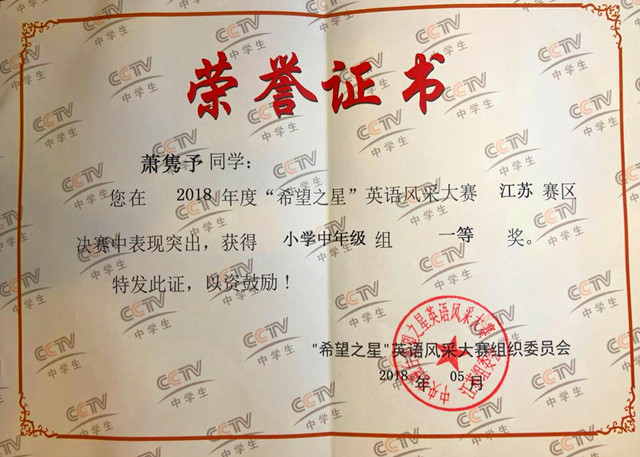 荣誉证书
萧隽予同学：
您在 2018 年度“希望之星”英语风采大赛 江苏 赛区
决赛中表现突出，获得 小学中年级 组 一等 奖。
特发此证，以资鼓励！
"希望之星"英语风采大赛组织委员会
2018 年 05 月
CCTV
中学生